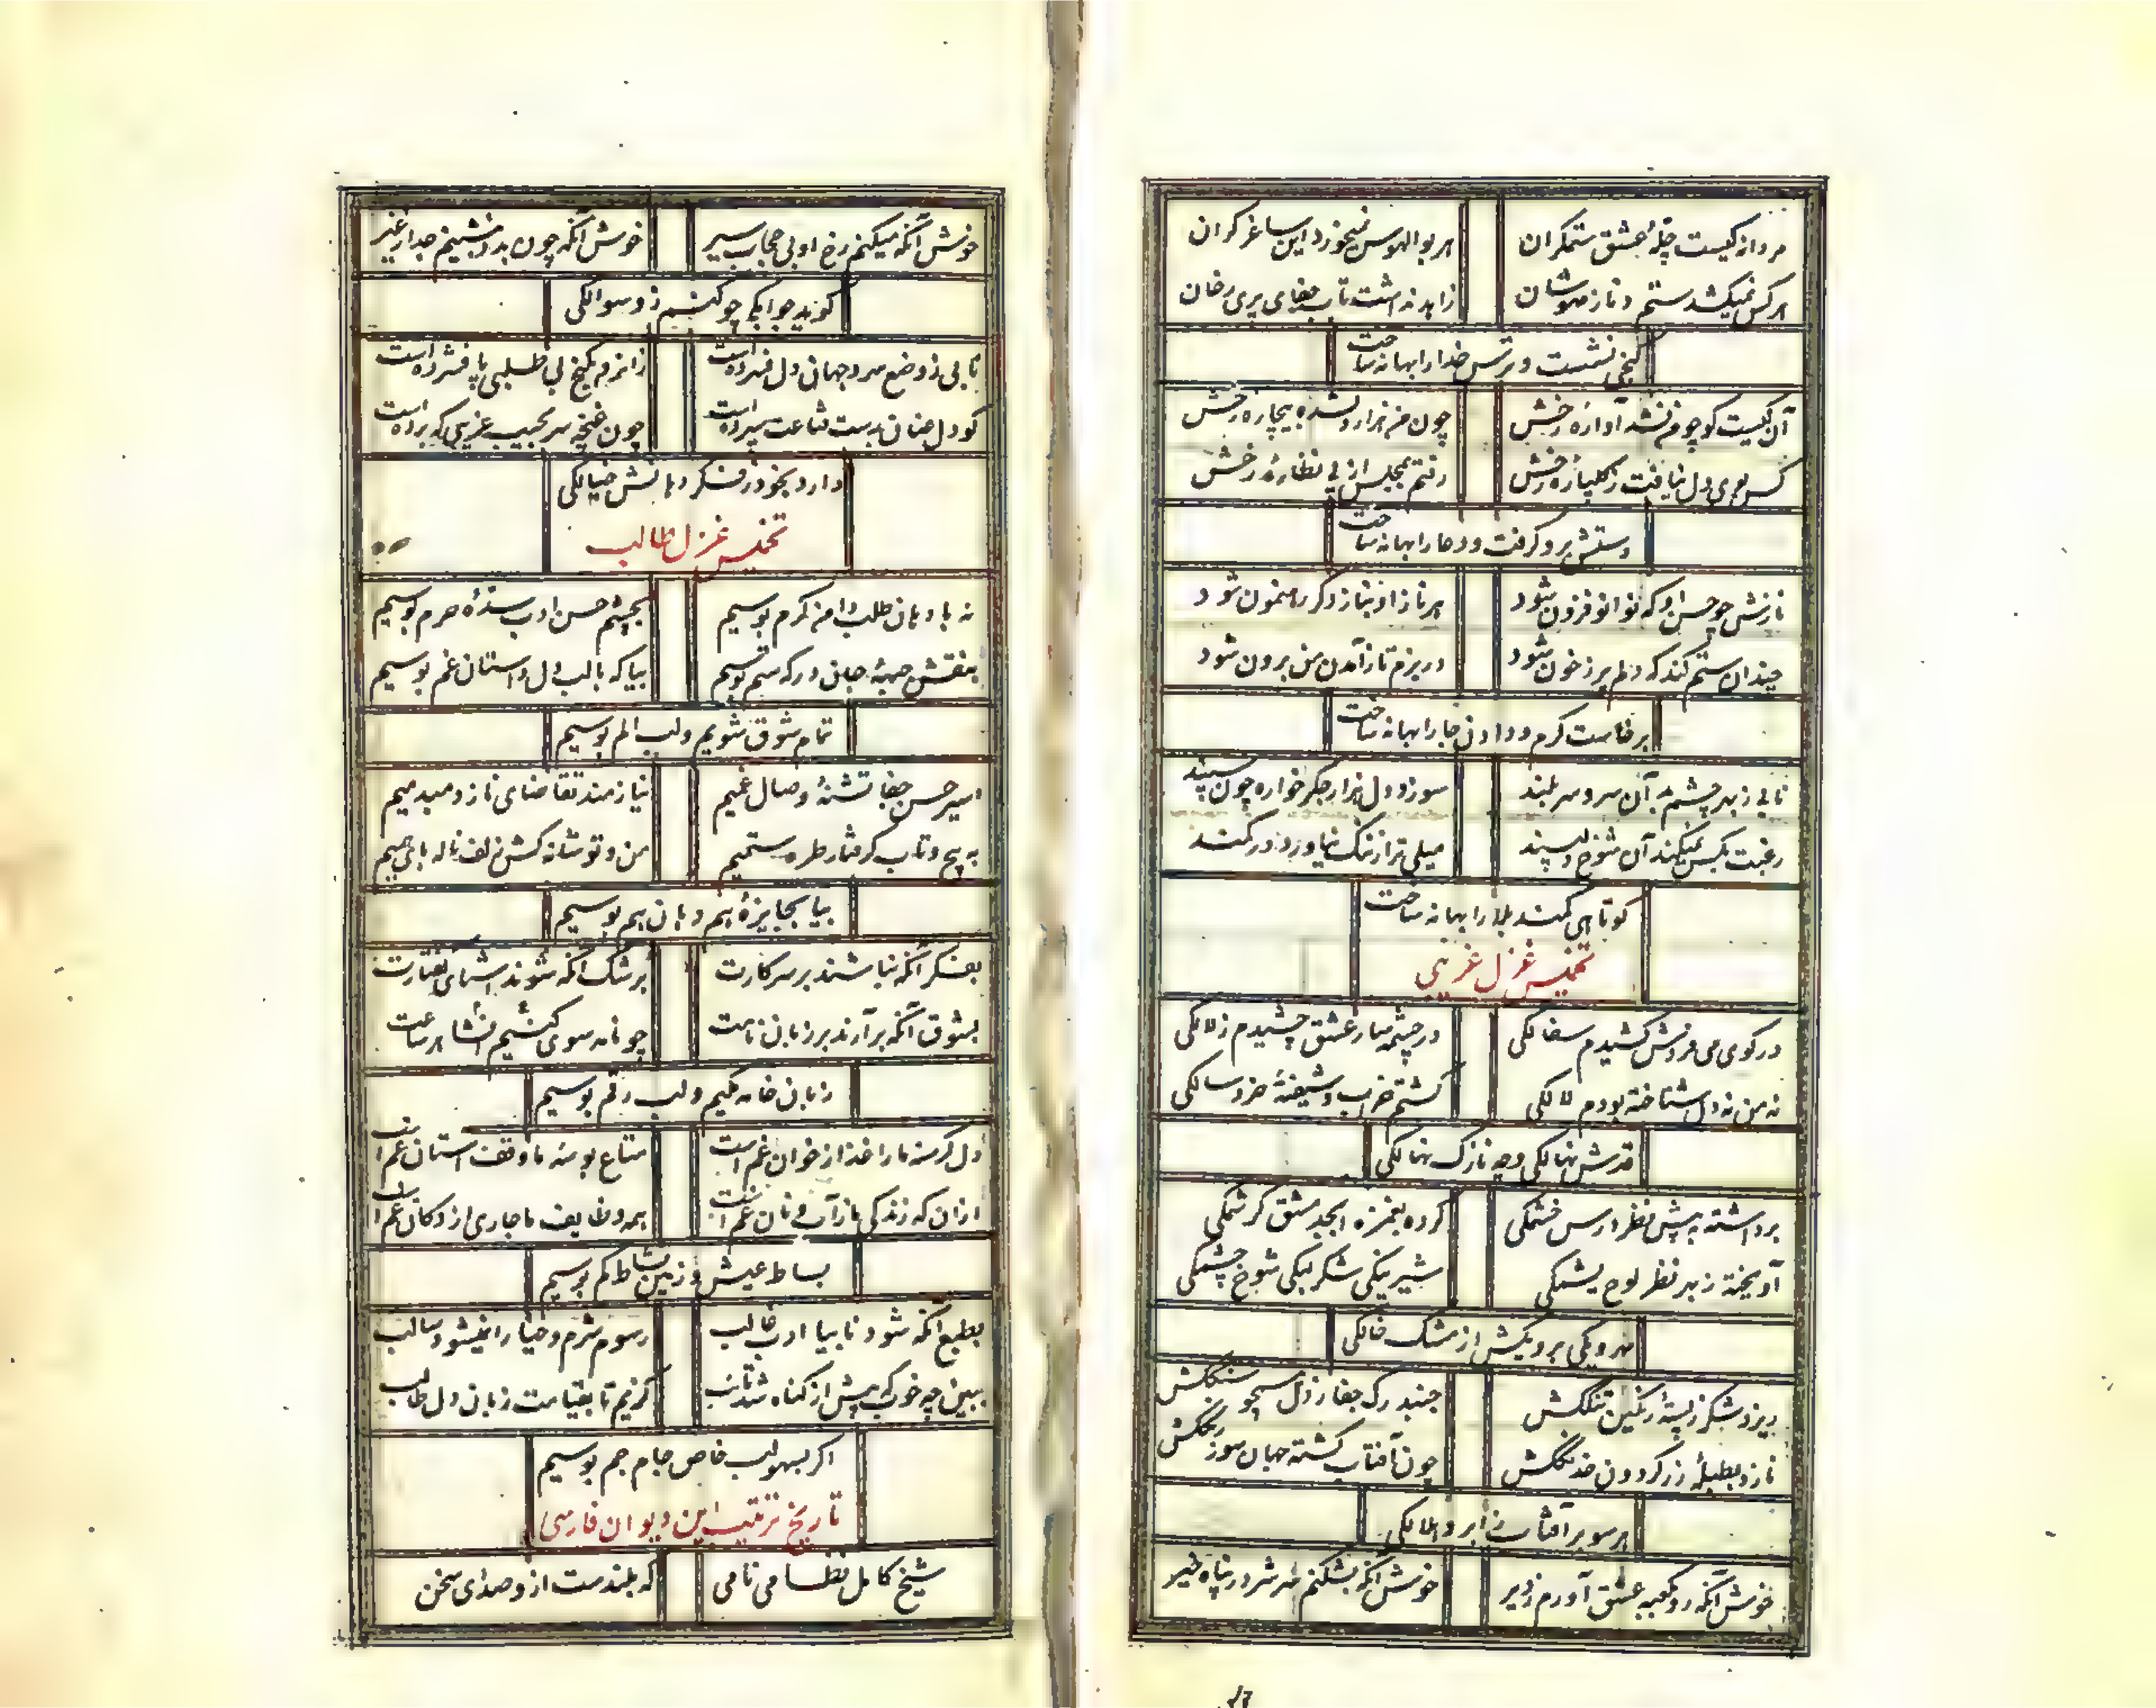 مردانه کیست چلهٔ عشق ستمگران
هر بوالهوس نمیخورد این ساغر گران
هر کس نمیکشد ستم و ناز مهوشان
زاهد نداشت تاب جفای پری رخان
کنجی نشست و ترس خدا را بهانه ساخت
آن کیست کو چو من نشد آواره رخش
چون من هزار دل شده بیچاره رخش
کس بوی دل نیافت ز گلپاره رخش
رفتم بمجلس از پی نظاره رخش
دستش برو گرفت و دعا را بهانه ساخت
نازش چو حسن او که نو انو فزون شود
هر ناز او بناز دگر رهنمون شود
چندان ستم کند که دلم پر ز خون شود
در بزم تا ز آمدن من برون شود
برخاست گرم و دادن جا را بهانه ساخت
نابی ز بهر چشم بد آن سرو سربلند
سوزد دل هزار جگر خواره چون سپند
رغبت بکس نمیکند آن شوخ دلپسند
میلی ترا ز ننگ نیاورد در کمند
کوتاهی کمند بلا را بهانه ساخت
تخمیس غزل غریبی
در کوی می فروش کشیدم سفالکی
در چشمه سار عشق چشیدم زلالکی
نه من نه دل شناخته بودم لالکی
گشتم خراب و شیفتهٔ خردسالکی
قدش نهالکی و چه نازک نهالکی
برداشته به پیش نظر درس خشمکی
کرده بغمزه ابجد مشق کرشمکی
آویخته ز بهر نظر لوح یشمکی
شیرینکی شکر لبکی شوخ چشمکی
مهرویکی برویکش از مشک خالکی
ریزد شکر ز پستهٔ رنگین تنگکش
جنبد رگ جفا ز دل همچو سنگکش
نازد بطبلهٔ زر گردون خدنگکش
چون آفتاب گشته جهان سوز رنگکش
هر سو بر آفتاب ز ابرو هلالکی
خوش آنکه رو بکعبه عشق آورم ز دیر
خوش آنکه بشکنم سر شر در پناه خیر
خوش آنکه میکنم رخ او بی حجاب سیر
خوش آنکه چون بدو بنشینم جدا ز غیر
گوید جوابکی چو کنم زو سوالکی
نابی ز وضع سرد جهان دل فسرده است
زانرو بکنج بی طلبی پا فشرده است
کو دل عنان بدست قناعت سپرده است
چون غنچه سر بجیب غریبی که برده است
دارد بخود ز فکر دهانش خیالکی
تخمیس غزل طالب
نه با دهان طلب دامن کرم بوسیم
بچشم حسن ادب سدهٔ حرم بوسیم
بنقش جبههٔ جان درگه ستم بوسیم
بیا که با لب دل آستان غم بوسیم
تمام شوق شویم و لب الم بوسیم
اسیر حسن جفا تشنهٔ وصال غمیم
نیازمند تقاضای ناز دمبدمیم
به پیچ و تاب گرفتار طره ستمیم
من و تو شانه کش زلف ناله با همیم
بیا بجایزه هم دهان هم بوسیم
بفکر آنکه نباشند بر سر کارت
برشک آنکه شوند آشنای گفتارت
بشوق آنکه برآرند بر زبان نامت
چو نامه سوی کنیم انشا هر ساعت
زبان خامه مکیم و لب رقم بوسیم
دل گرسنه ما را غذا ز خوان غم است
متاع بوسه ما وقف آستان غم است
ازان که زندگی ما ز آب و نان غم است
همه وظایف ما جاری از دکان غم است
بساط عیش و زمین نشاط کم بوسیم
بطبع آنکه شود نابیا ادب غالب
رسوم شرم و حیا را نمیشود سالب
ببین چه خوب که پیش از گناه شد تائب
گزیم تا بقیامت زبان دل طالب
اگر بسهو لب خاص جام جم بوسیم
تاریخ ترتیب این دیوان فارسی
شیخ کامل نظامی نامی
که بلندست ازو صدای سخن